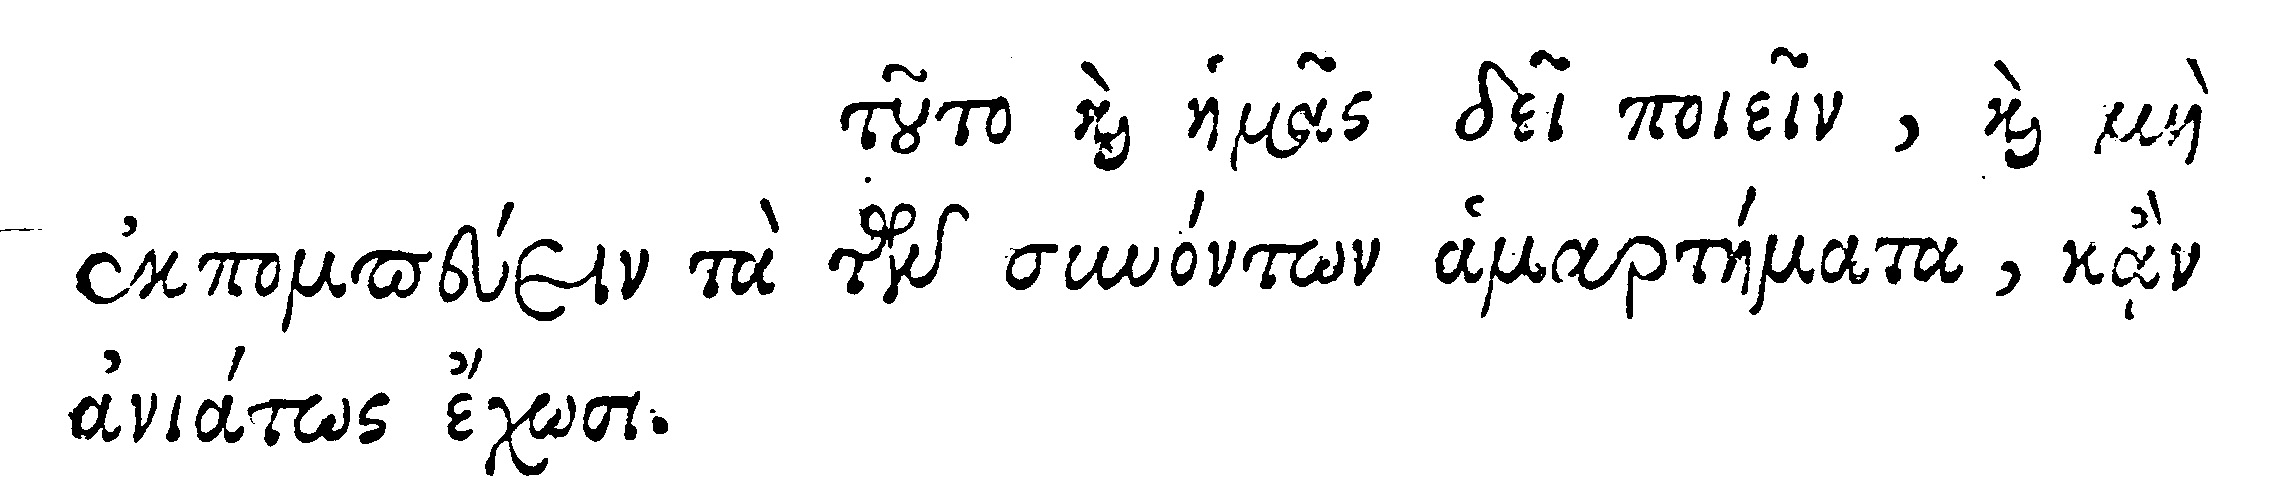 τοῦτο καὶ ἡμᾶς δεῖ ποιεῖν, καὶ μὴ
ἐκπομπεύειν τὰ τῶν συνόντων ἁμαρτήματα, κᾂν
ἀνιάτως ἔχωσι.